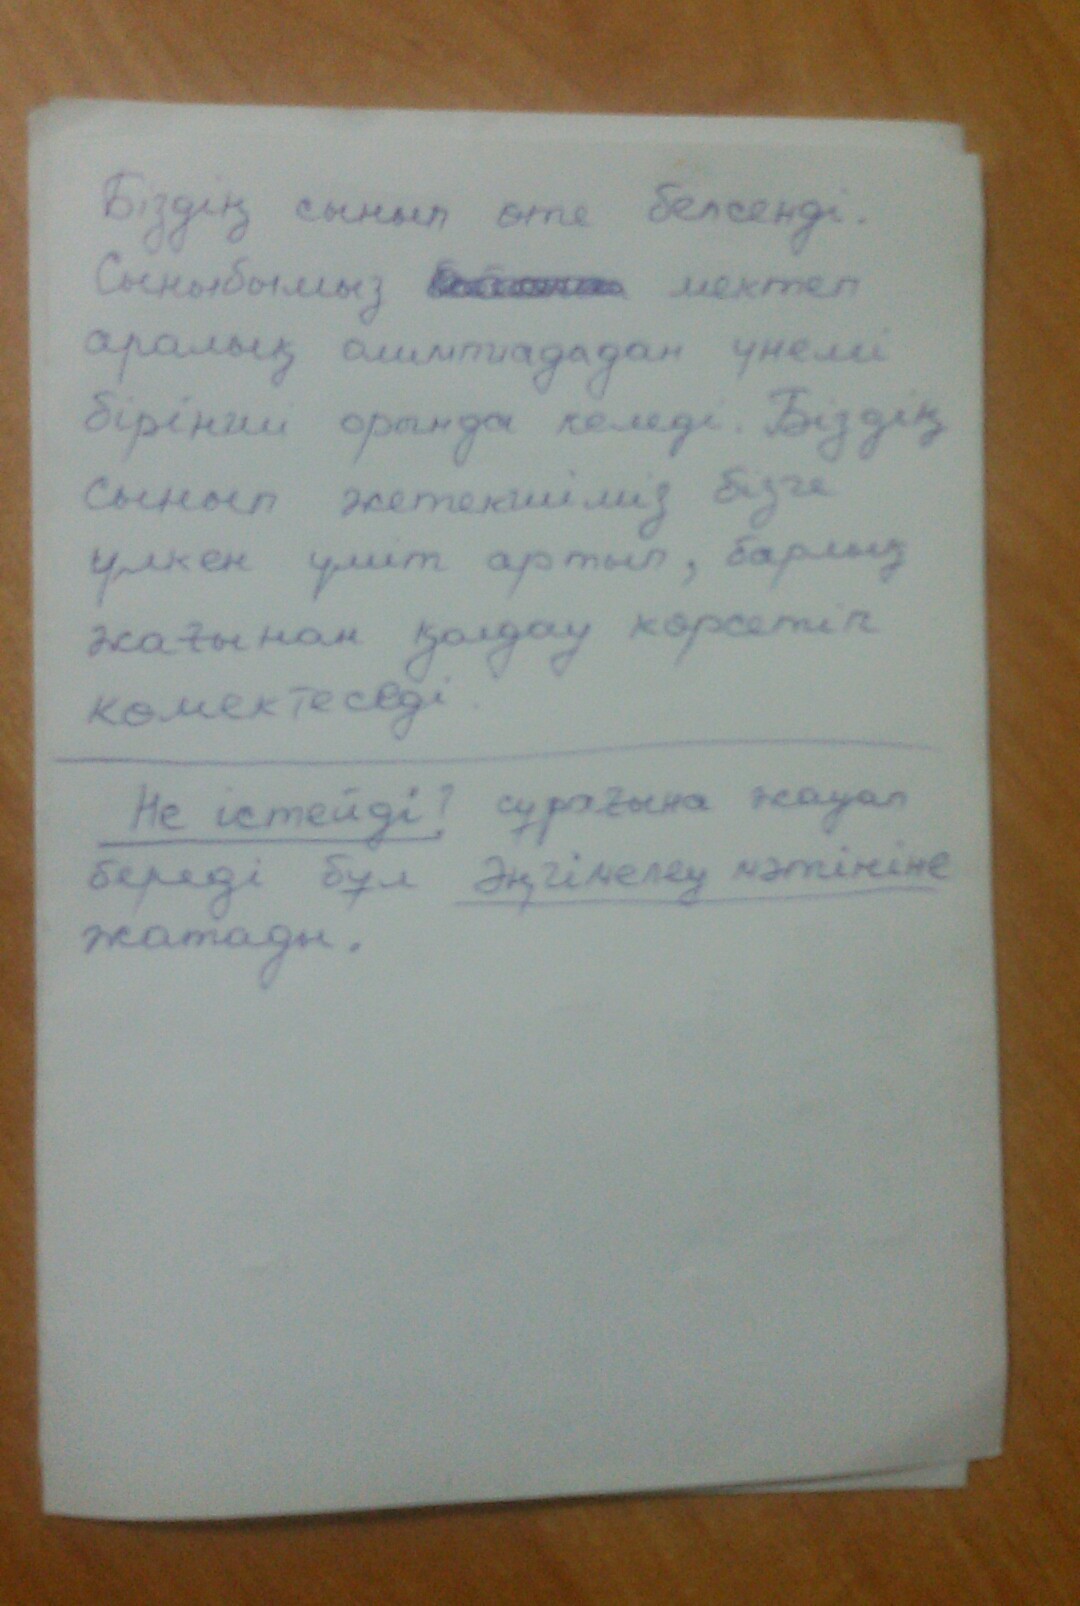 Біздің сынып өте белсенді.
Сыныбымыз мектеп
аралық олимпиададан үнемі
бірінші орында келеді. Біздің
сынып жетекшіміз бізге
үлкен үміт артып, барлық
жағынан қолдау көрсетіп
көмектеседі.
Не істейді? сұрағына жауап
береді бұл әңгімелеу мәтініне
жатады.